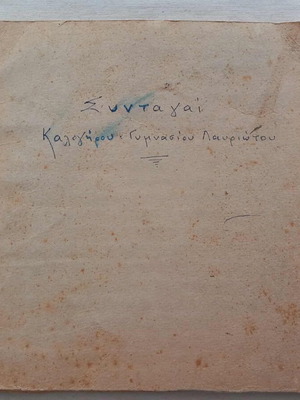 Συνταγαί
Καλογήρου Γυμνασίου Λαυριώτου